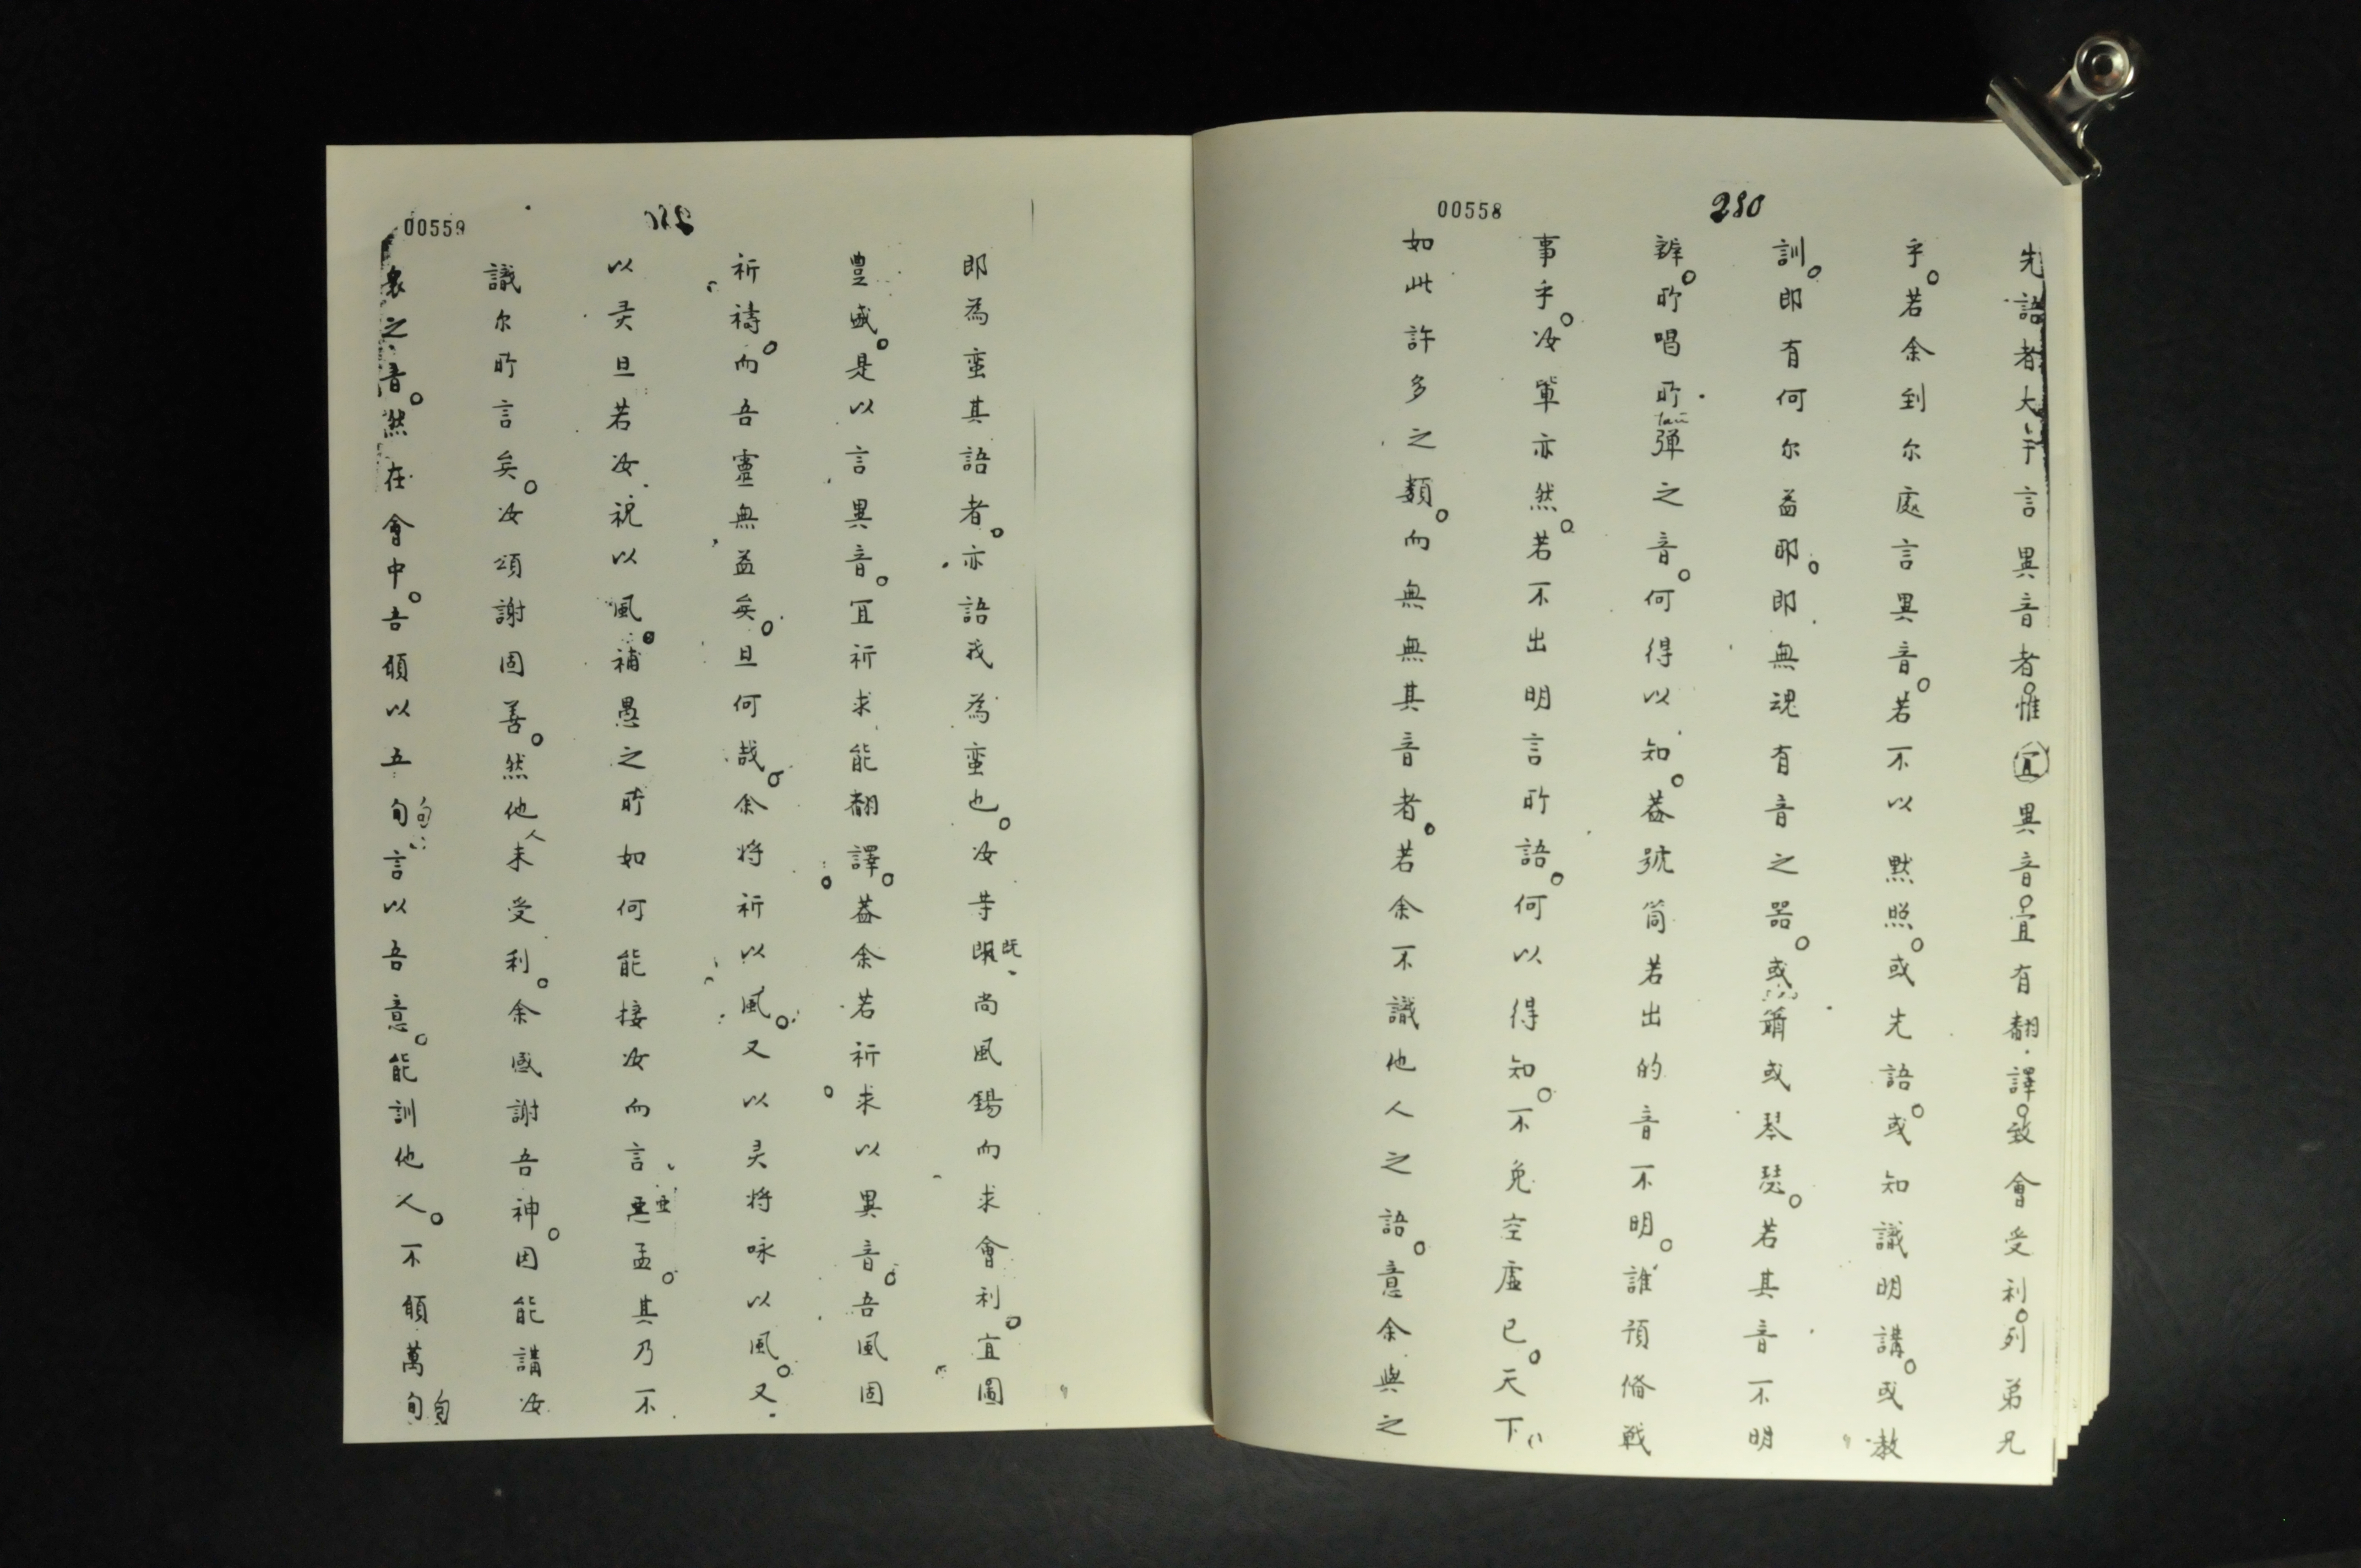 00558
280
先語者大于言異音者。惟宜異音。宜有翻譯。致會受利。列弟兄
乎。若余到尔處言異音。若不以默照。或先語。或知識明講。或教
訓。即有何尔益耶。即無魂有音之器。或簫或琴瑟。若其音不明
辨。所唱所彈之音。何得以知。蓋號筒若出的音不明。誰預俻戰
事乎。汝軰亦然。若不出明言所語。何以得知。不免空虛已。天下
如此許多之類。而無無其音者。若余不識他人之語。意余與之
00559
即為蛮其語者。亦語我為蛮也。汝等既尚風錫而求會利。宜圖
豊盛。是以言異音。宜祈求能翻譯。蓋余若祈求以異音。吾風固
祈禱。而吾靈無益矣。旦何哉。余将祈以風。又以灵将咏以風。又
以灵旦若汝祝以風。補愚之所如何能接汝而言亜孟。其乃不
識尔所言矣。汝頌謝固善。然他人未受利。余感謝吾神。因能講汝
衆之音。然在會中。吾願以五句言以吾意。能訓他人。不願萬句